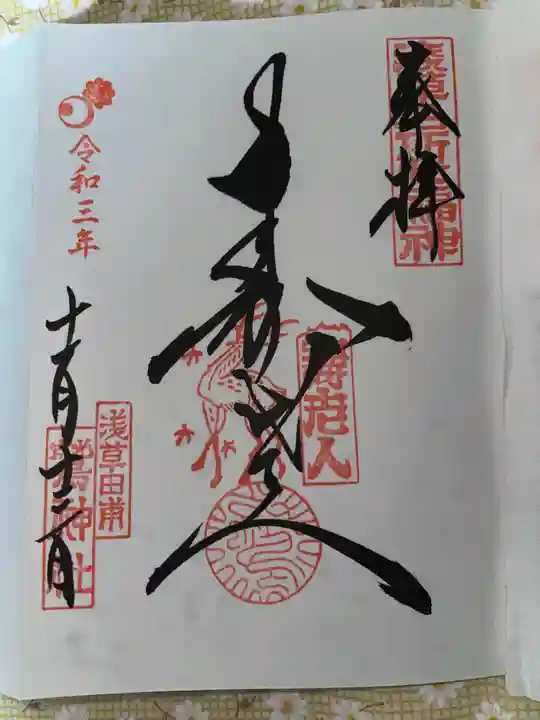 奉拝
寿老人
寿老人
令和三年
十一月十二日
浅草田甫
鷲神社